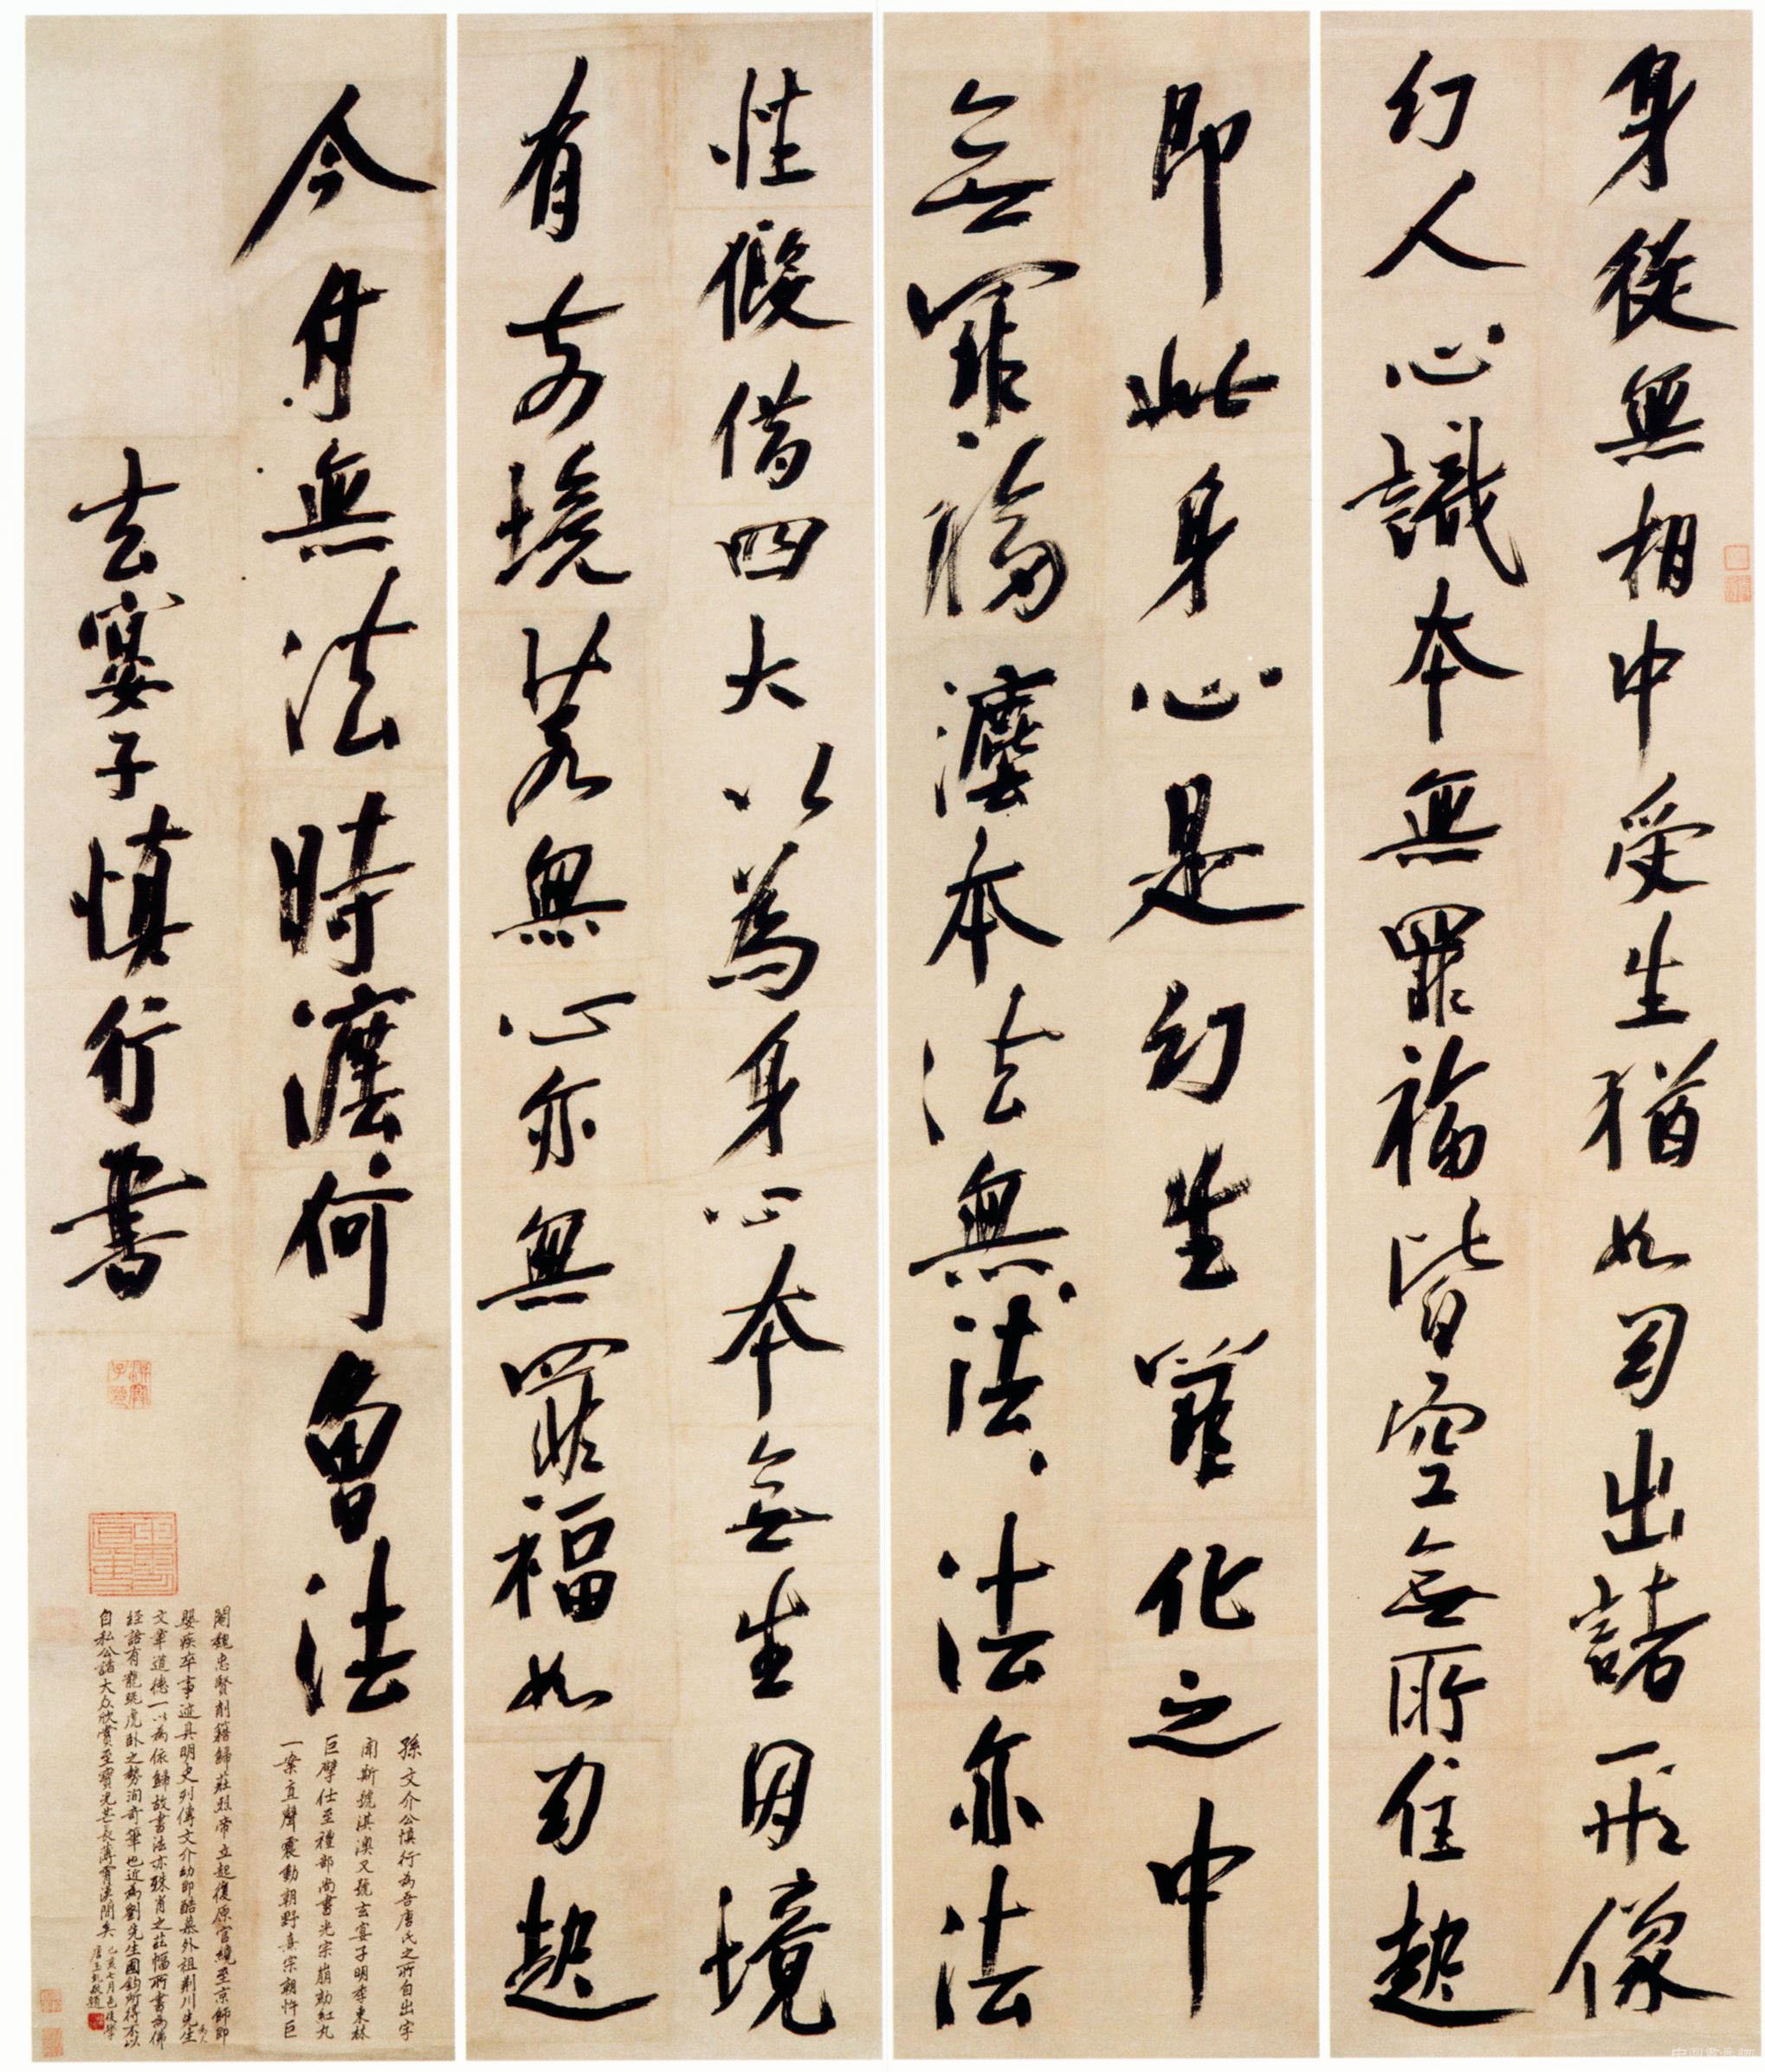 身從無相中受生猶如幻出諸形像
幻人心識本無罪福皆空無所住起
即此身心是幻生罪化之中
無罪福灋本法無、法、法亦法
性假借四大以為身心本無生因境
有前境若無心亦無罪福如幻起
今付無法時灋何曾法
玄宴子慎行書
孫文介公慎行為吾唐氏之所自出字
聞斯號淇澳又號玄宴子明季東林
巨擘仕至禮部尚書光宗崩劾紅丸
一案直聲震動朝野熹宗朝忤巨
閹魏忠賢削籍歸莊烈帝立起復原官繞至京師即
嬰疾卒事迹具明史列傳文介幼即酷慕外祖荊川先生為人
文章道德一以為依歸故書法亦殊肖之茲幅所書為佛
經語有龍跳虎臥之勢洵奇筆也近為劉先生國鈞所得不以
自私公諸大众欣賞至寶光芒長薄霄漢間矣 己亥七月邑後學
唐玉虬敬題